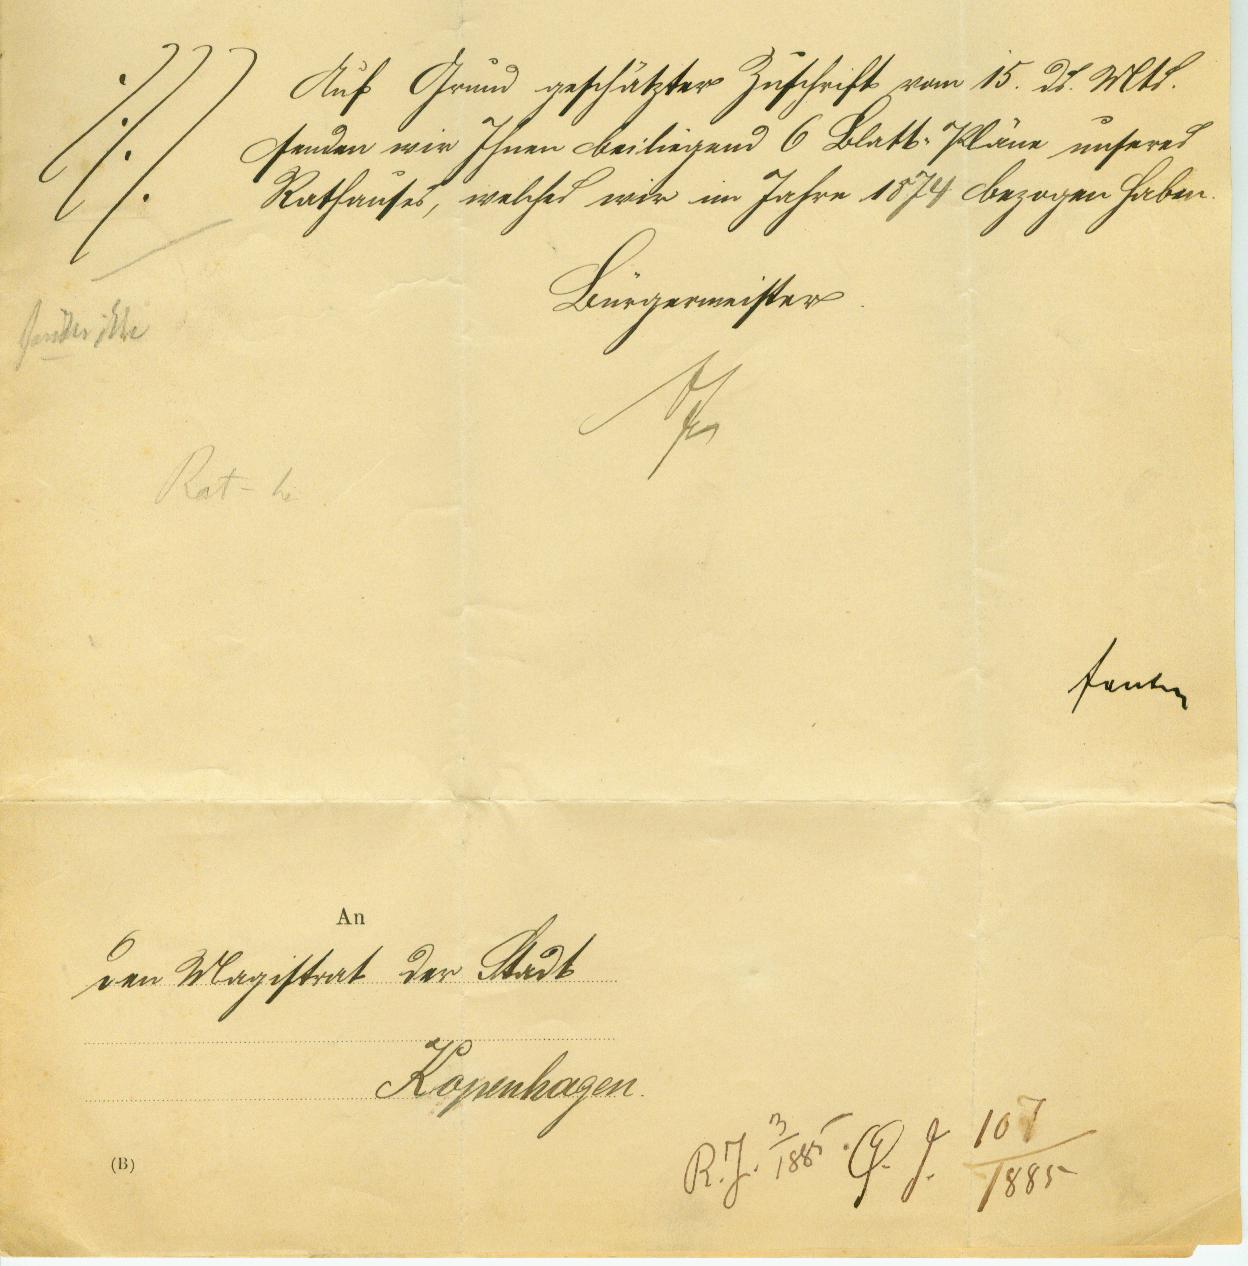 Auf Grund geschätzter Zuschrift vom 15. ds. Mts.
senden wir Ihnen beiliegend 6 Blatt-Pläne unseres
Rathauses, welches wir im Jahre 1874 bezogen haben.
Bürgermeister
Rat-h
An
den Magistrat der Stadt
Kopenhagen.
(B)
R.J. 3/1885. Q. J. 107/1885